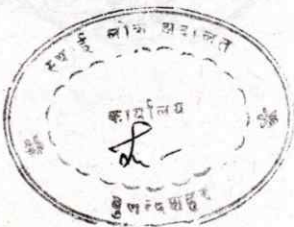 स्थाई लोक अदालत
कार्यालय
बुलन्दशहर